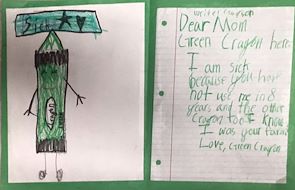 Sick
Crayon
writer crayson
Dear Mom
Green Crayon here.
I am sick
because you have
not use me in 8
years and the other
Crayon too I know
I was your favrit
Love, Green Crayon